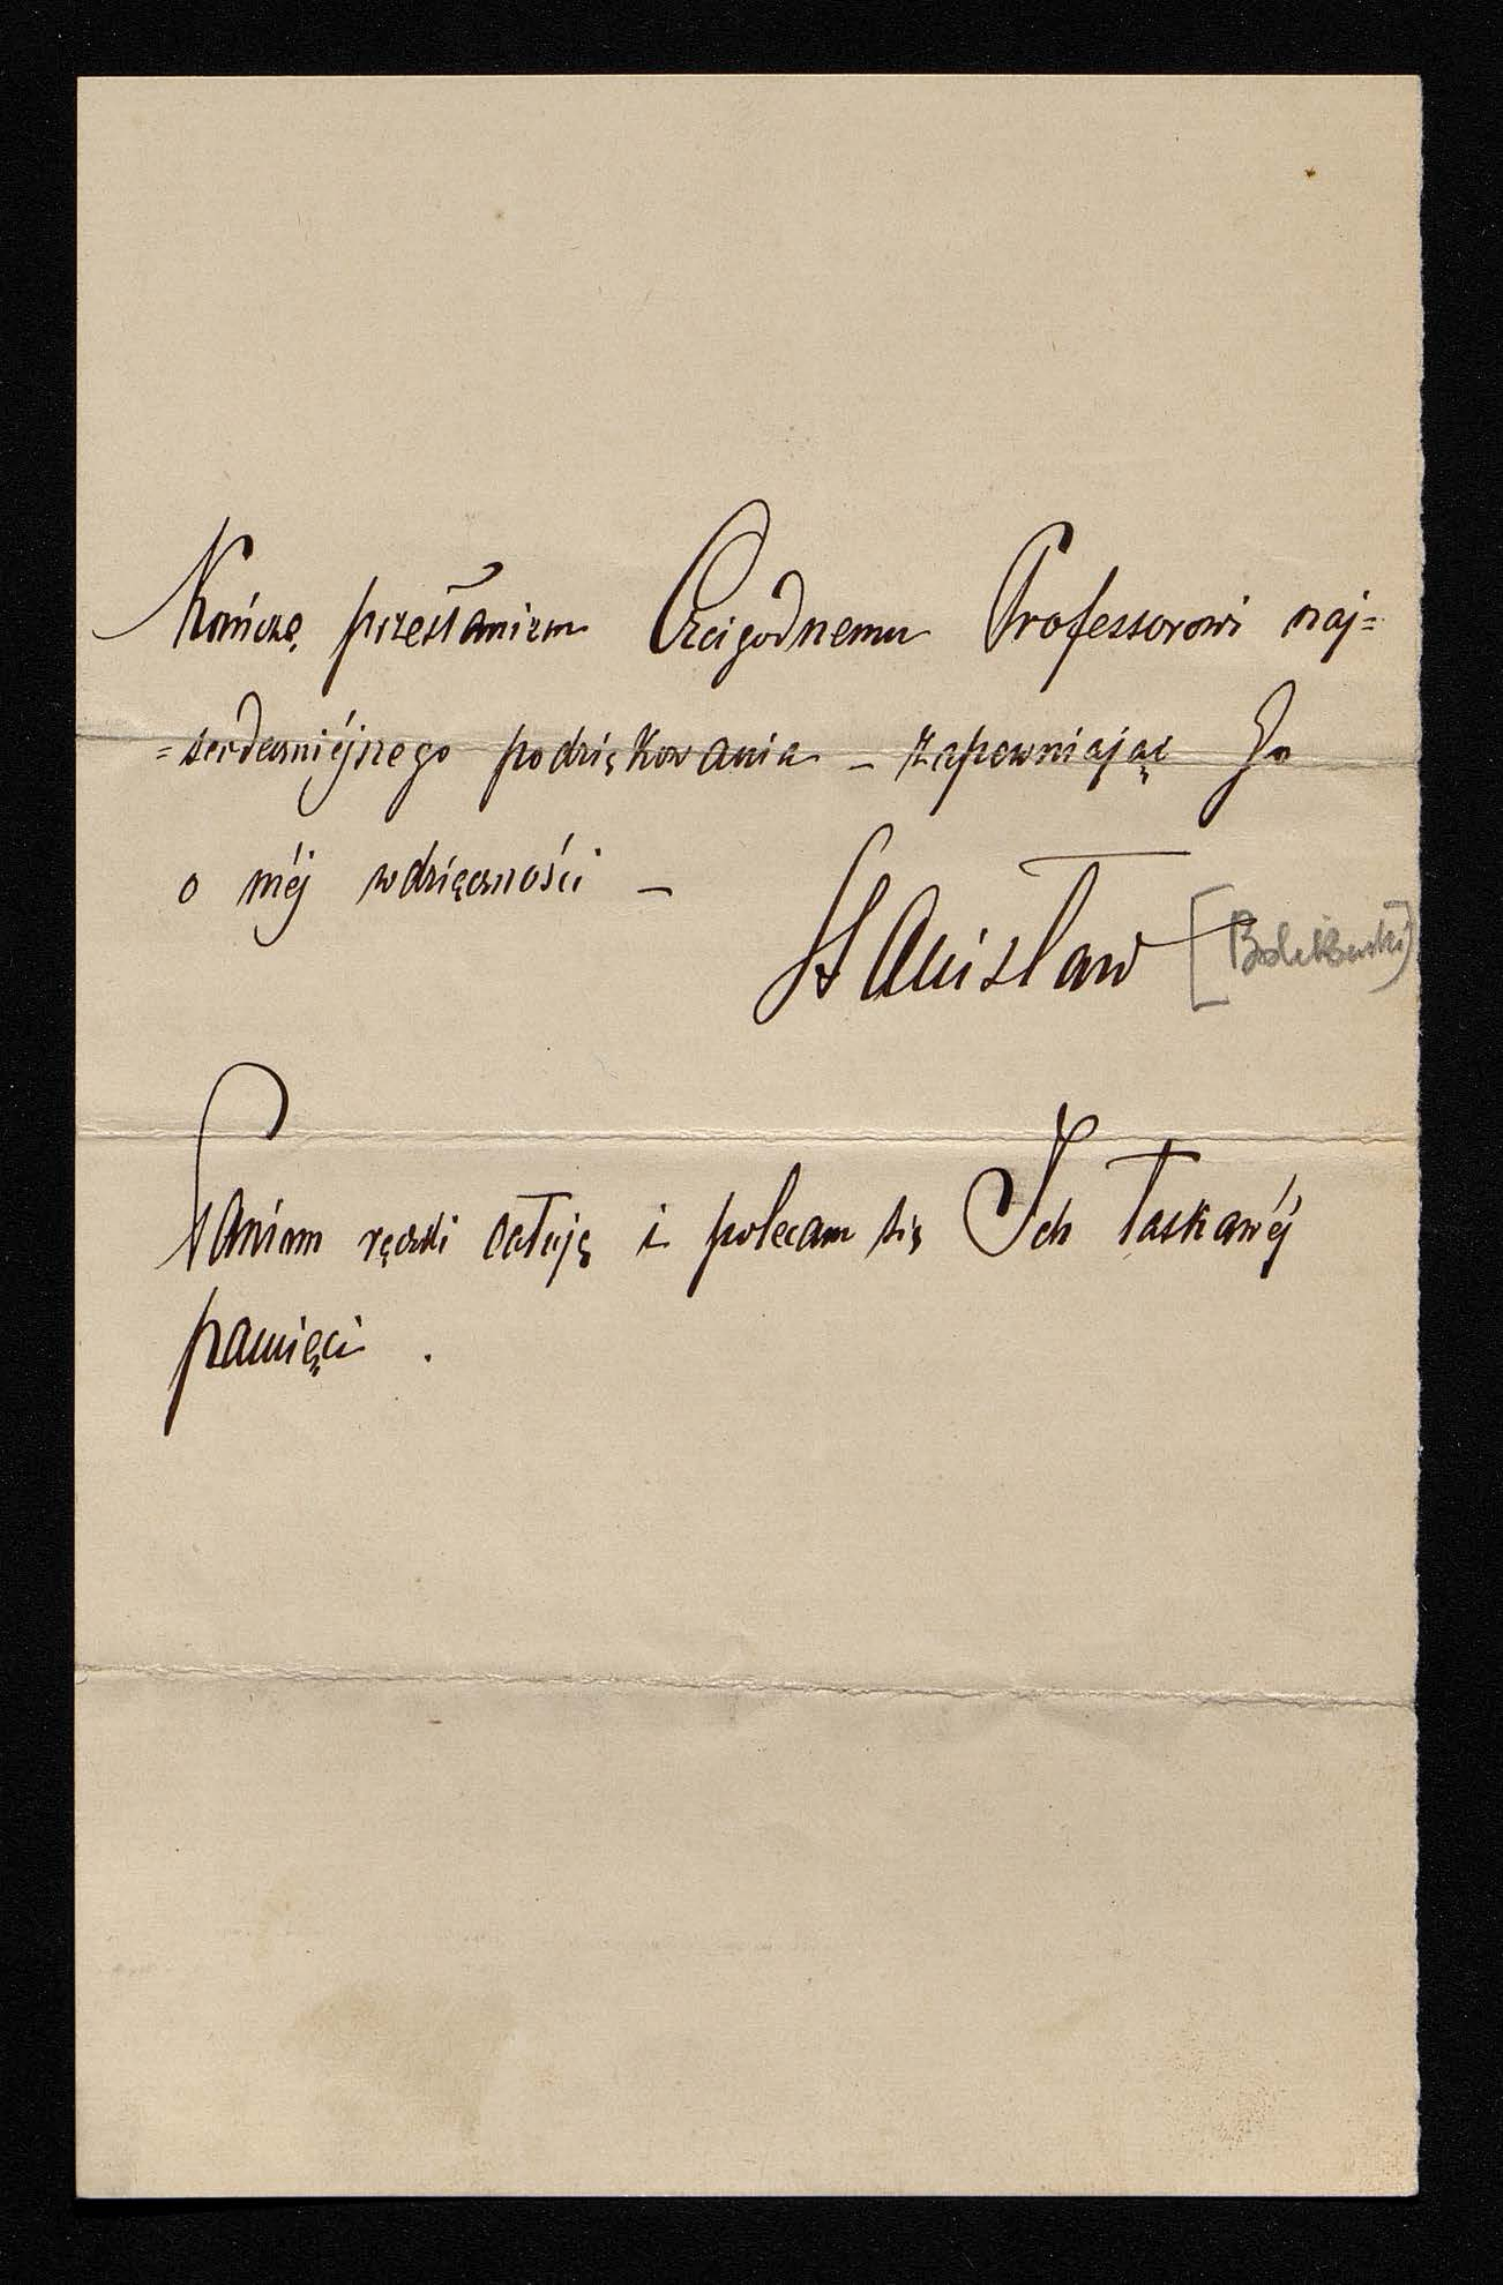 Kończę przesłaniem Czcigodnemu Professorowi naj=
=serdeczniéjszego podziękowania – zapewniając Go
o méj wdzięczności –
Stanisław
Paniom rączki całuję i polecam się Ich łaskawéj
pamięci .